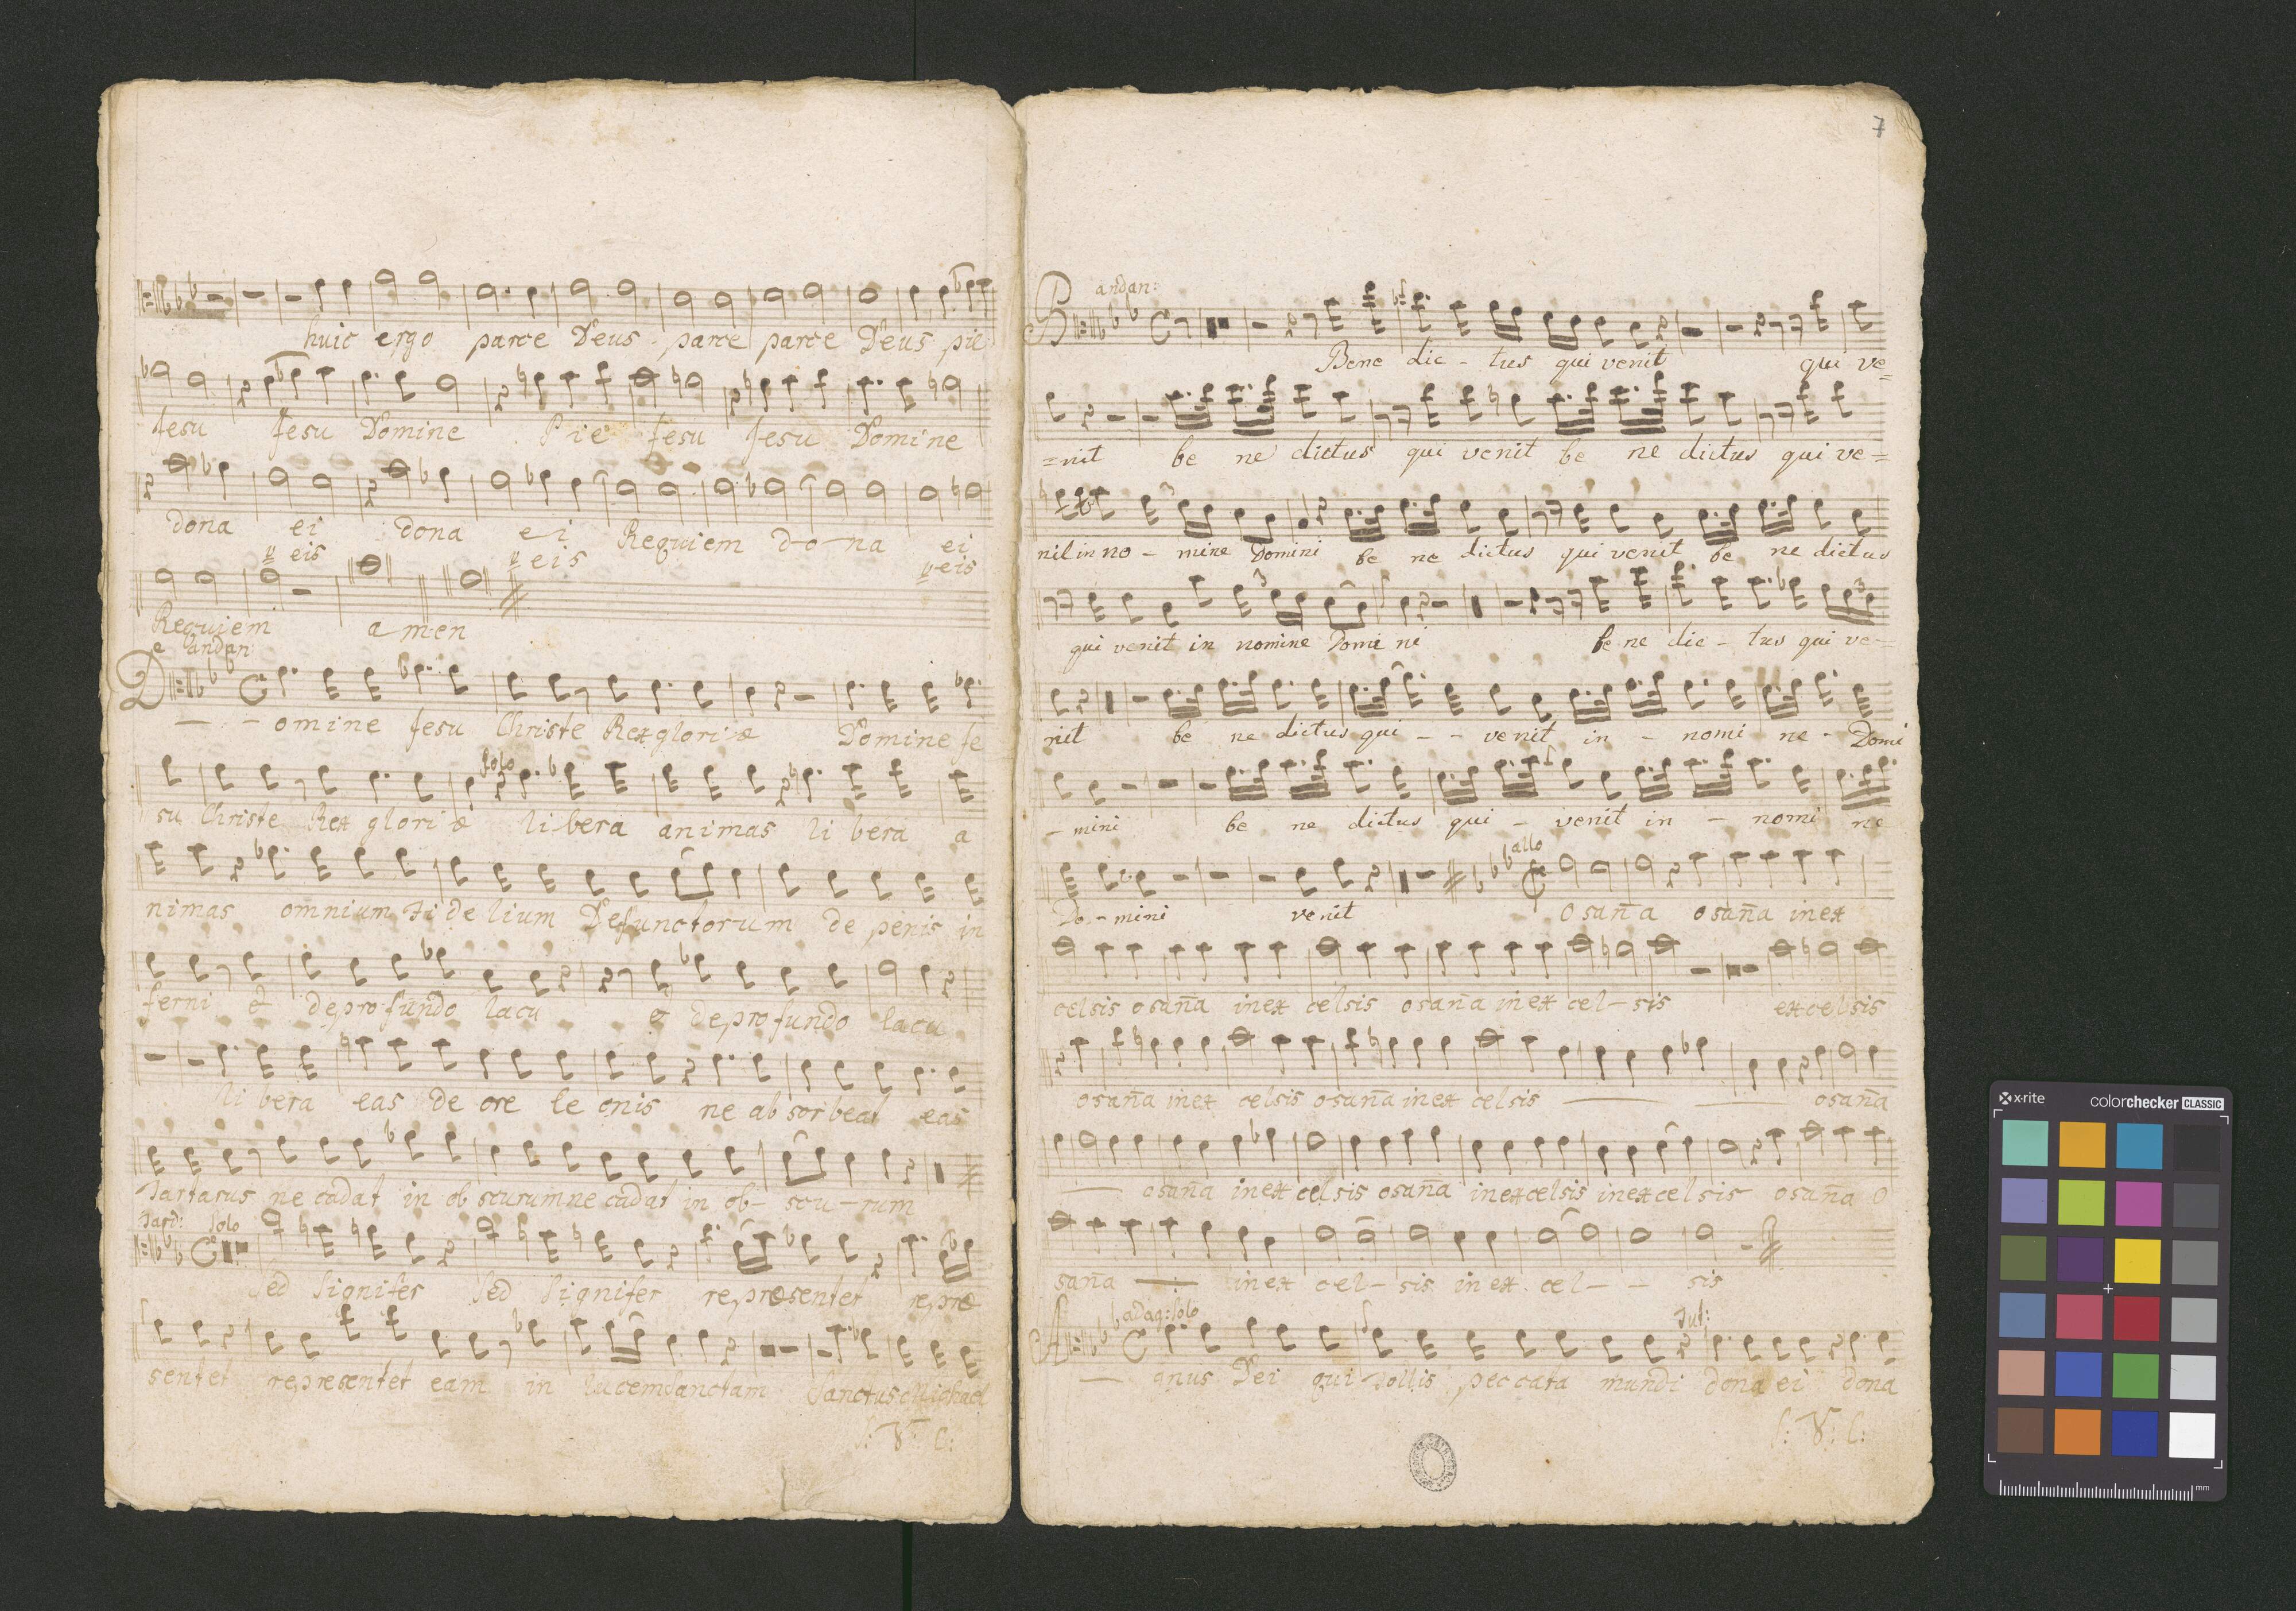 huic ergo parce Deus - parce parce Deus pie
Jesu Jesu Domine Pie Jesu Jesu Domine
dona ei dona ei Requiem do-na ei
eis eis eis
Requiem amen
andan:
D - omine Jesu Christe Rex gloriæ Domine Je
solo
su Christe Rex gloriæ libera animas libera a
nimas omnium Fidelium Defunctorum de penis in
ferni et deprofundo lacu et deprofundo lacu
libera eas de ore leonis ne absorbeat eas
Tartarus ne cadat in obscurum ne cadat in ob-scu-rum
Tard: solo
Sed Signifer Sed Signifer repræsentet repræ
sentet repræsentet eam in lucem Sanctam Sanctus Michael
S: V: C:
7
andan:
Bene dic - tus qui venit qui ve=
=nit be ne dictus qui venit be ne dictus qui ve=
nit in no - mine Domini be ne dictus qui venit be ne dictus
3
qui venit in nomine Domini be ne dic - tus qui ve-
3 3
nit be ne dictus qui - - venit in - nomi ne - Domi
- mini be ne dictus qui - venit in - nomi ne
allo
Do - mini venit Osaña osaña inex
celsis osaña inex celsis osaña inex cel-sis excelsis
osaña inex celsis osaña inex celsis osaña
osaña inex celsis osaña inexcelsis inexcelsis osaña O
saña inex cel-sis inex cel - - sis
adag: solo Tut:
A - gnus Dei qui tollis peccata mundi dona ei dona
S: V: C:
x-rite
colorchecker CLASSIC
mm